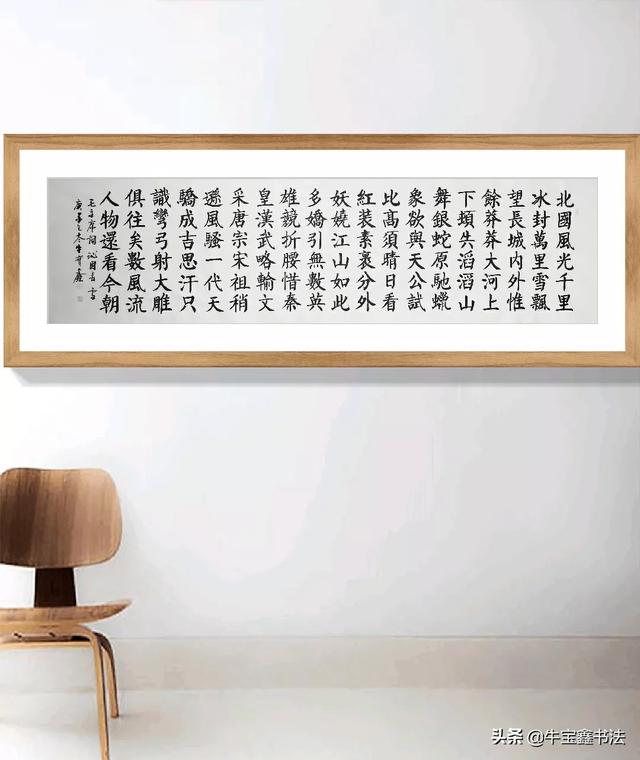 北國風光千里
冰封萬里雪飄
望長城内外惟
餘莽莽大河上
下頓失滔滔山
舞銀蛇原馳蠟
象欲與天公試
比高須晴日看
紅装素裹分外
妖嬈江山如此
多嬌引無數英
雄競折腰惜秦
皇漢武略輸文
采唐宗宋祖稍
遜風騷一代天
驕成吉思汗只
識彎弓射大雕
俱往矣數風流
人物還看今朝
毛主席詞沁園春雪
庚子之冬牛寶鑫
头条 @牛宝鑫书法